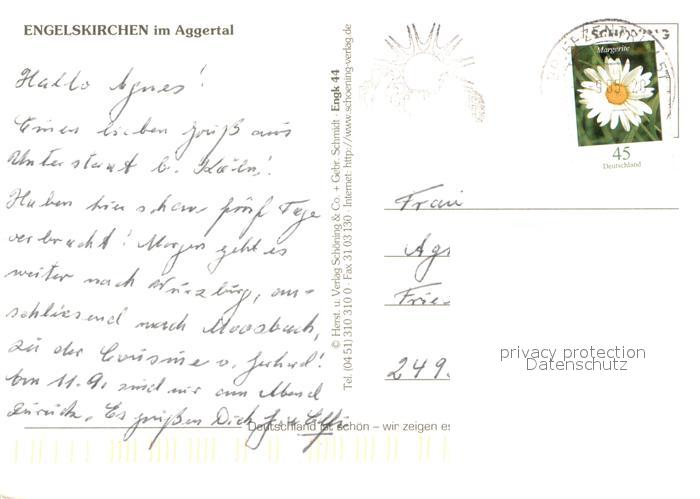 ENGELSKIRCHEN im Aggertal
Hallo Agnes!
Einen lieben Gruß aus
b. Köln!
Haben hier schon fünf Tage
verbracht! Morgen geht es
weiter nach Würzburg, an-
schliesend nach Moosbach,
zu der Cousine v. Gerhard!
Am 11.9. sind wir am Abend
zurück. Es grüßen Dich
© Herst. u. Verlag Schöning & Co. + Gebr. Schmidt · Engk 44
Tel. (04 51) 310 310 0 · Fax 31 03 130 · Internet: http://www.schoening-verlag.de
Deutschland ist schön – wir zeigen es
Margerite
45
Deutschland
Frau
Ag
Frie
249
privacy protection
Datenschutz